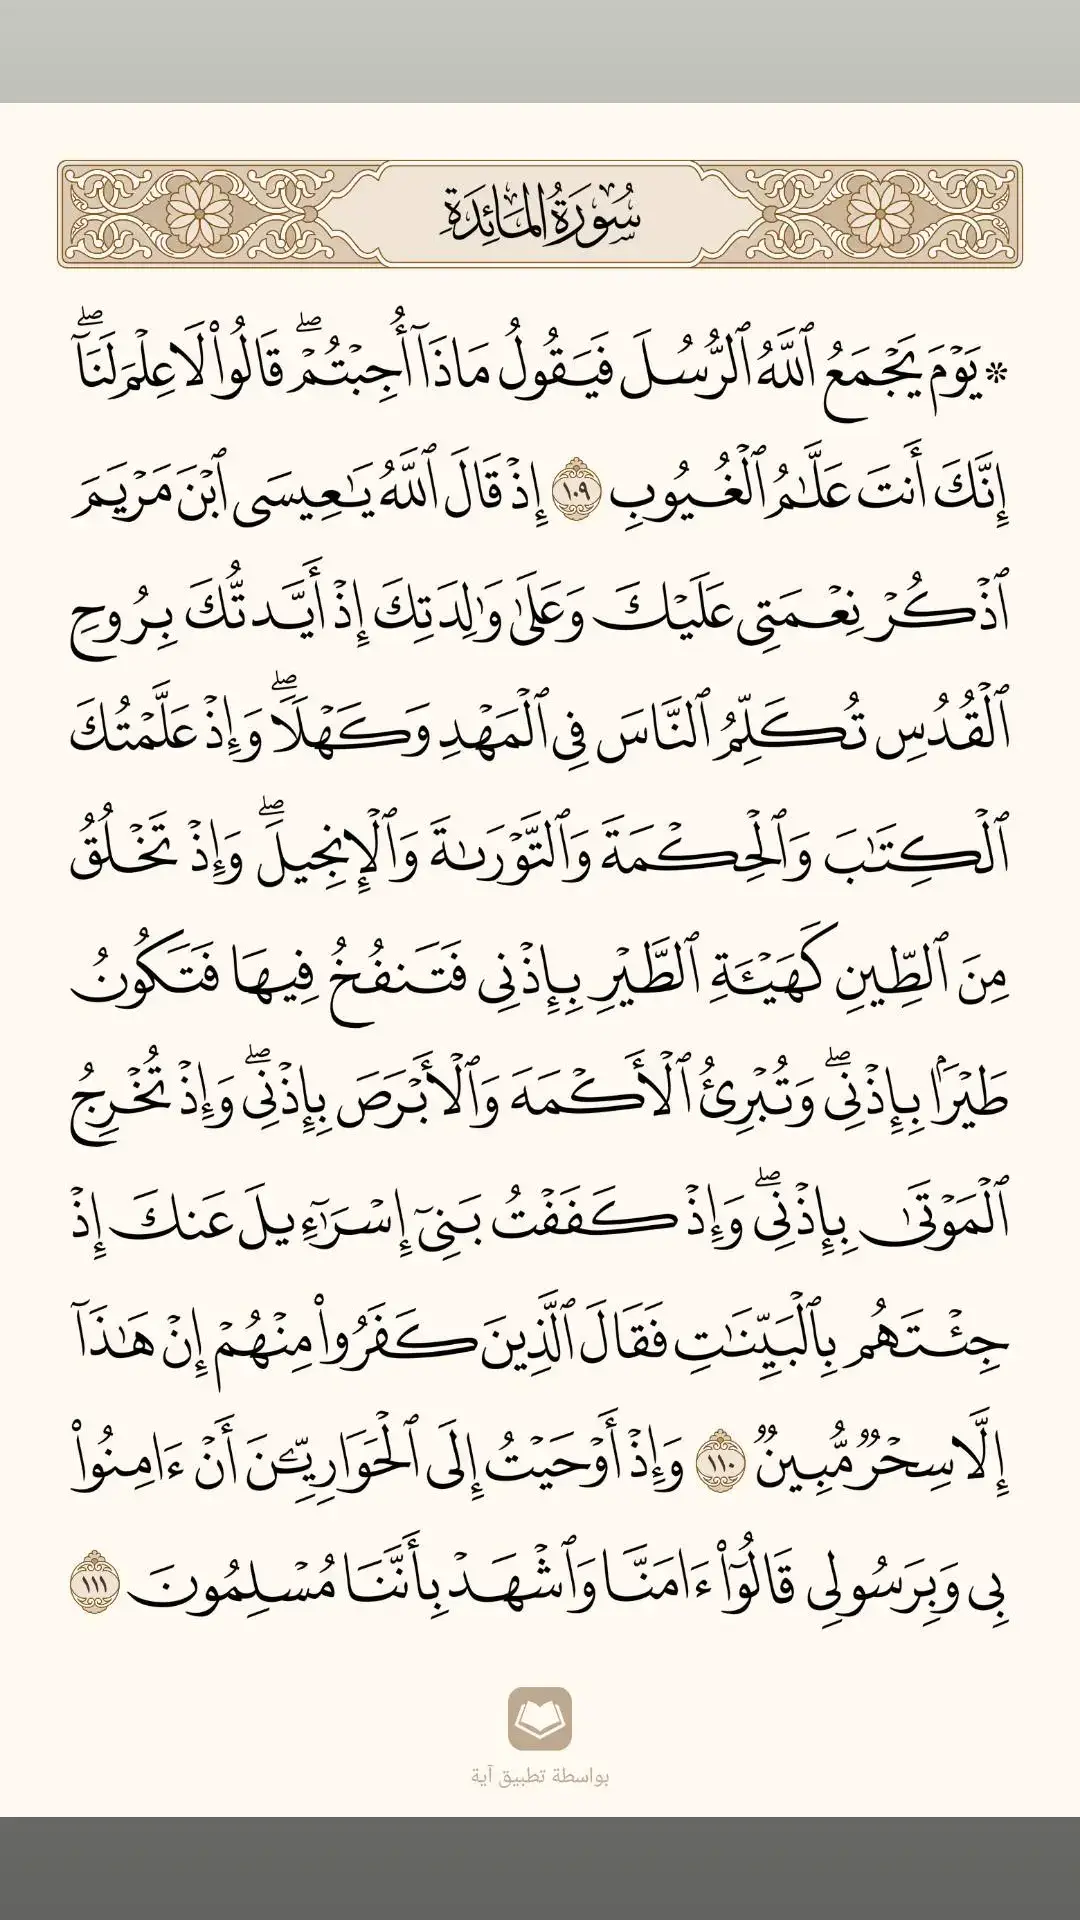 سُورَةُ المَائِدَةِ
۞ يَوْمَ يَجْمَعُ ٱللَّهُ ٱلرُّسُلَ فَيَقُولُ مَاذَآ أُجِبْتُمْۖ قَالُوا۟ لَا عِلْمَ لَنَآۖ
إِنَّكَ أَنتَ عَلَّٰمُ ٱلْغُيُوبِ ١٠٩ إِذْ قَالَ ٱللَّهُ يَٰعِيسَى ٱبْنَ مَرْيَمَ
ٱذْكُرْ نِعْمَتِى عَلَيْكَ وَعَلَىٰ وَٰلِدَتِكَ إِذْ أَيَّدتُّكَ بِرُوحِ
ٱلْقُدُسِ تُكَلِّمُ ٱلنَّاسَ فِى ٱلْمَهْدِ وَكَهْلًاۖ وَإِذْ عَلَّمْتُكَ
ٱلْكِتَٰبَ وَٱلْحِكْمَةَ وَٱلتَّوْرَىٰةَ وَٱلْإِنجِيلَۖ وَإِذْ تَخْلُقُ
مِنَ ٱلطِّينِ كَهَيْـَٔةِ ٱلطَّيْرِ بِإِذْنِى فَتَنفُخُ فِيهَا فَتَكُونُ
طَيْرًۢا بِإِذْنِىۖ وَتُبْرِئُ ٱلْأَكْمَهَ وَٱلْأَبْرَصَ بِإِذْنِىۖ وَإِذْ تُخْرِجُ
ٱلْمَوْتَىٰ بِإِذْنِىۖ وَإِذْ كَفَفْتُ بَنِىٓ إِسْرَٰٓءِيلَ عَنكَ إِذْ
جِئْتَهُم بِٱلْبَيِّنَٰتِ فَقَالَ ٱلَّذِينَ كَفَرُوا۟ مِنْهُمْ إِنْ هَٰذَآ
إِلَّا سِحْرٌ مُّبِينٌ ١١٠ وَإِذْ أَوْحَيْتُ إِلَى ٱلْحَوَارِيِّـۧنَ أَنْ ءَامِنُوا۟
بِى وَبِرَسُولِى قَالُوٓا۟ ءَامَنَّا وَٱشْهَدْ بِأَنَّنَا مُسْلِمُونَ ١١١
بواسطة تطبيق آية